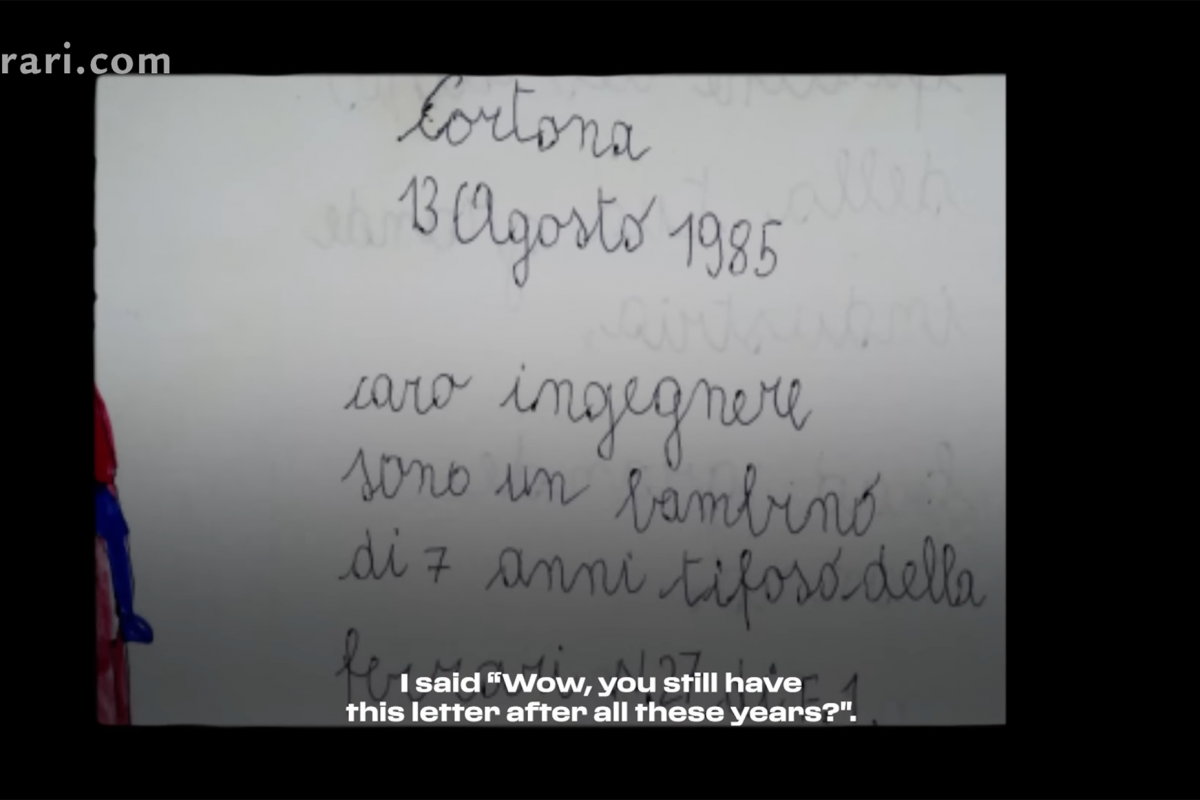 rari.com
Cortona
13 Agosto 1985
caro ingegnere
sono un bambino
di 7 anni tifoso della
ferrari N.27 di F1
I said “Wow, you still have
this letter after all these years?".